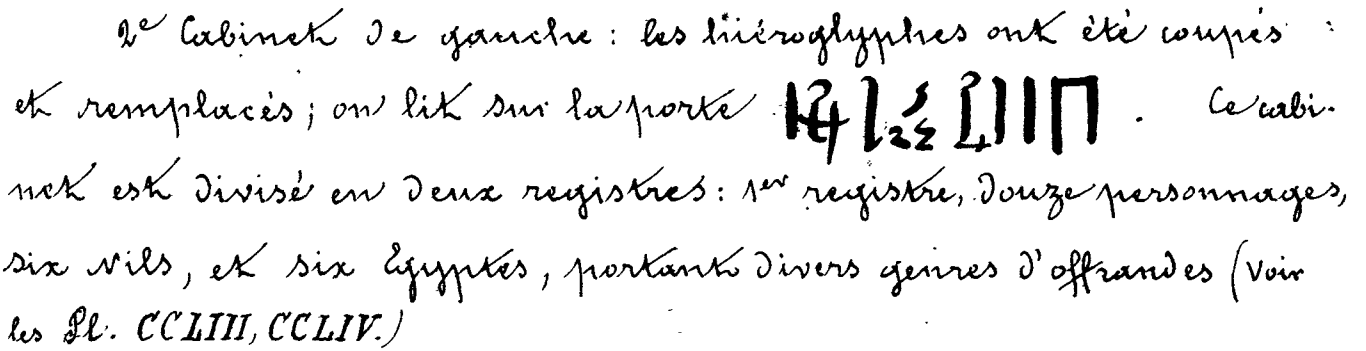 2e Cabinet de gauche : les hiéroglyphes ont été coupés
et remplacés; on lit sur la porte . Ce cabi-
net est divisé en deux registres : 1er registre, douze personnages,
six Nils, et six Egyptes, portant divers genres d'offrandes (Voir
les Pl. CCLIII, CCLIV.)